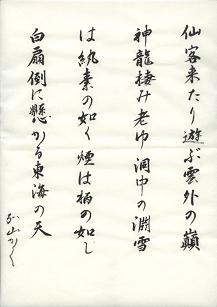 仙客来たり遊ぶ雲外の巓
神龍棲み老ゆ洞中の淵雪
は紈素の如く煙は柄の如し
白扇倒に懸かる東海の天
山かく